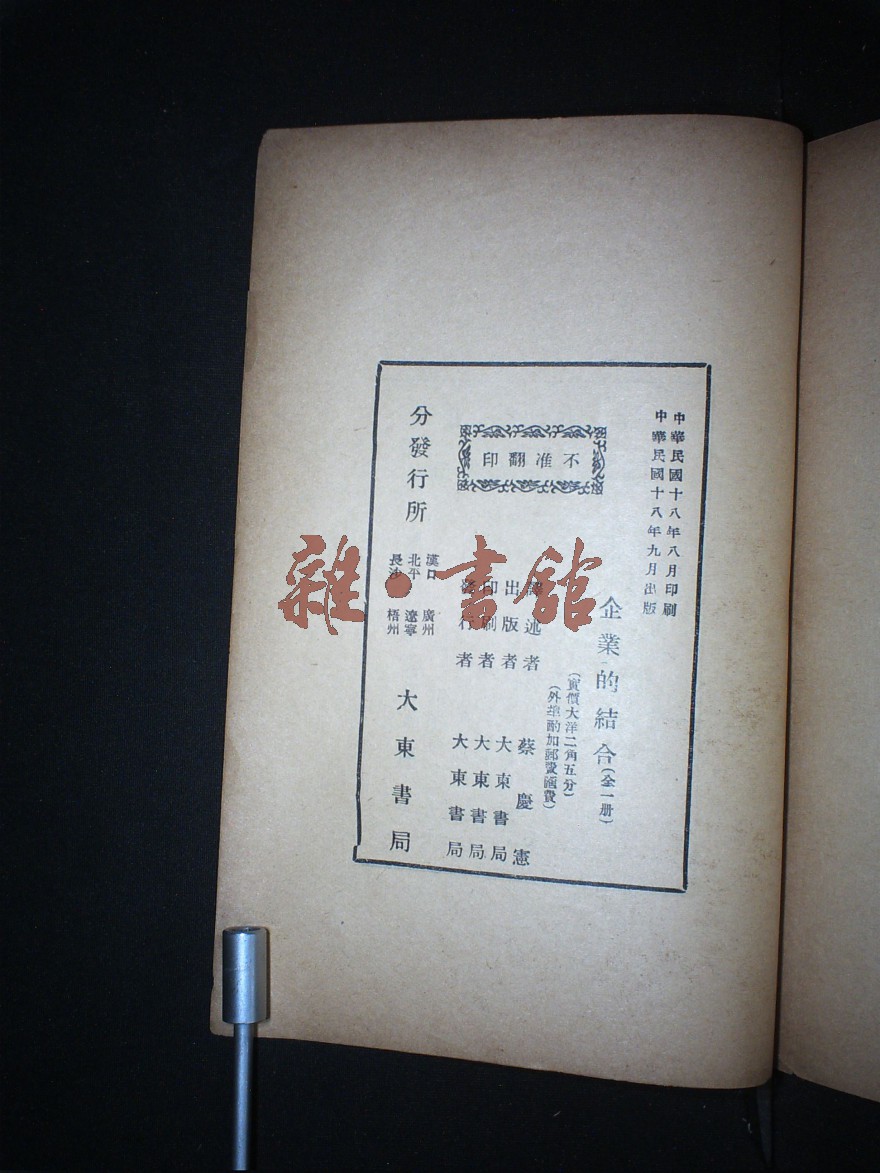 中華民國十八年八月印刷
中華民國十八年九月出版
企業的結合(全一册)
(實價大洋二角五分)
(外埠酌加郵費滙費)
不准翻印
譯述者 蔡慶憲
出版者 大東書局
印刷者 大東書局
發行者 大東書局
分發行所
漢口 廣州
北平 遼寧
長沙 梧州
大東書局
雜·書館